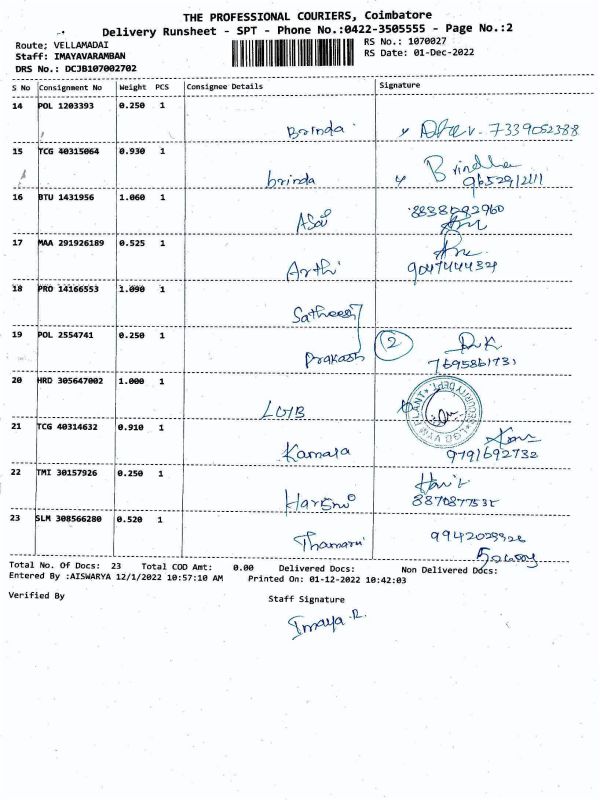 THE PROFESSIONAL COURIERS, Coimbatore
Delivery Runsheet - SPT - Phone No.:0422-3505555 - Page No.:2
Route; VELLAMADAI
RS No.: 1070027
Staff: IMAYAVARAMBAN
RS Date: 01-Dec-2022
DRS No.: DCJB107002702
S No Consignment No Weight PCS Consignee Details Signature
14 POL 1203393 0.250 1
Brinda 7339052388
15 TCG 40315064 0.930 1
brinda Brindha
16 BTU 1431956 1.060 1
Asai
17 MAA 291926189 0.525 1
Arthi
18 PRO 14166553 1.090 1
Satheesh
19 POL 2554741 0.250 1
Prakash 2
7695861731
20 HRD 305647002 1.000 1
SECURITY DEPT.
21 TCG 40314632 0.910 1
Kamala
9791692732
22 TMI 30157926 0.250 1
Harini
8870877535
23 SLM 308566280 0.520 1
Total No. Of Docs: 23 Total COD Amt: 0.00 Delivered Docs: Non Delivered Docs:
Entered By :AISWARYA 12/1/2022 10:57:10 AM Printed On: 01-12-2022 10:42:03
Verified By Staff Signature
Imaya.R.